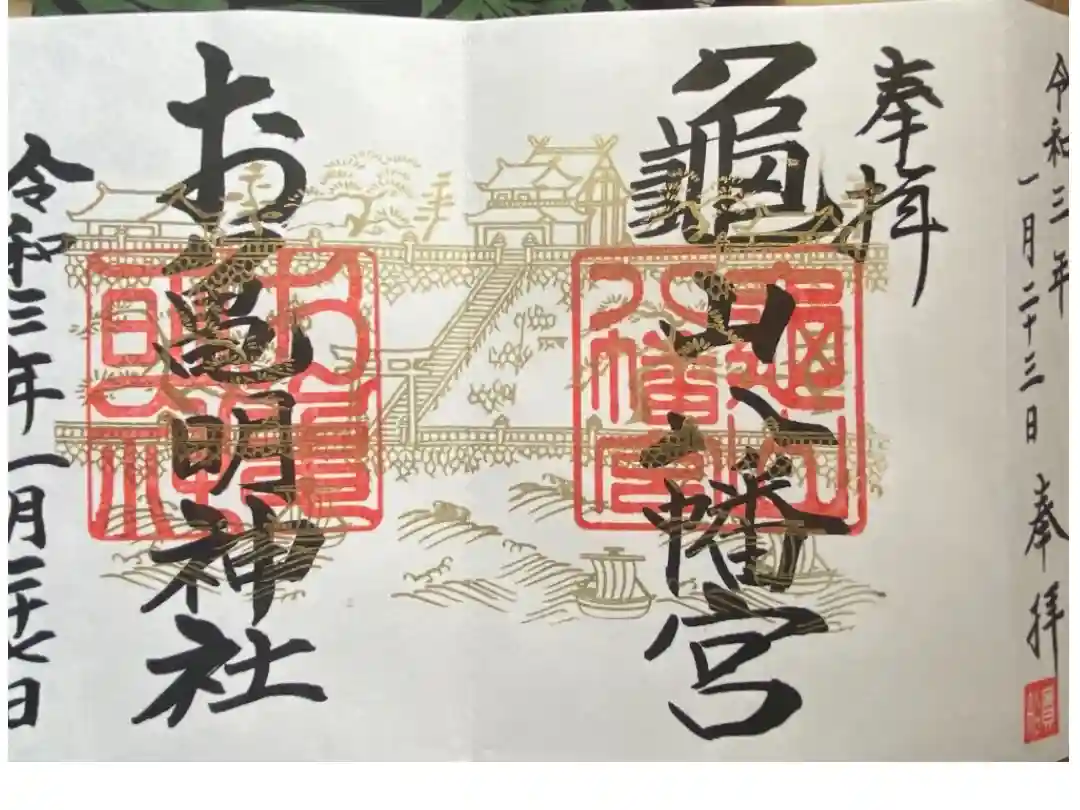 令和三年
一月二十三日 奉拝
奉拝
龜山八幡宮
龜山
八幡宮
お亀明神社
令和三年一月二十七日